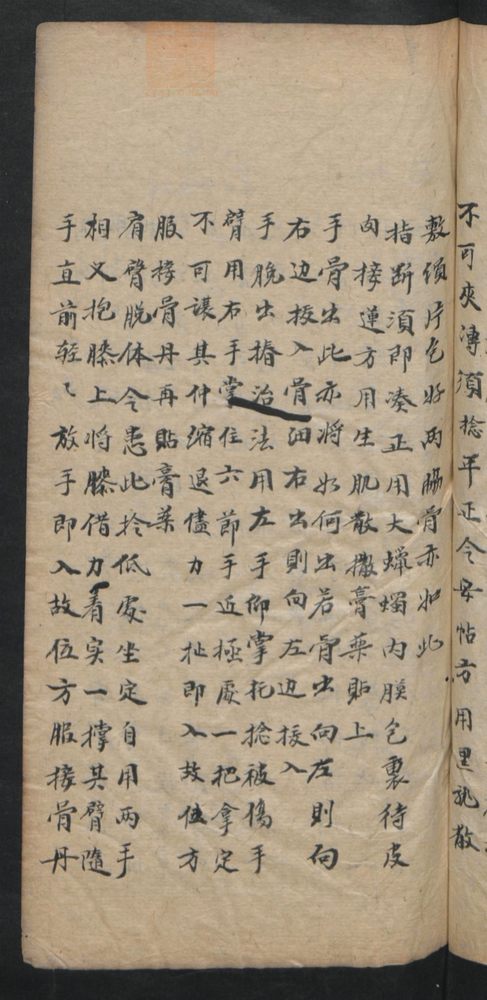 不可夾薄須捻平正令母帖方用黑乱散
敷須片包好两腸骨亦如此
指斷須即凑正用大蠟燭内膜包裹待皮
肉接連方用生肌散撒膏藥貼上
手骨出此亦將如何出若骨出向左則向
右边扳入骨細右出則向左边扳入
手腕出揝治法用左手仰掌托捻被傷手
臂用右手掌住六節手近極處一把拿定
不可讓其伸缩退儘力一扯即入故位方
服接骨丹再貼膏藥
肩臂脱体令患此拎低處坐定自用两手
相义抱膝上將膝借力着实一撑其臂隨
手直前轻〻放手即入故位方服接骨丹